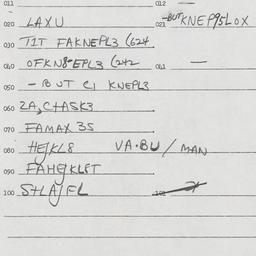 011 012 —
020 LAXU 021 -BUT KNEP95LOX
030 TIT FAKNEPL3 (624
040 OFKN8EPL3 (242 041 —
050 - BUT C1 KNEPL3
060 2A, C+ASK3
070 FAMAX 3S
080 HEJKL8 VA·BU / MAN
090 FAHEJKLPT
100 S+LAJFL